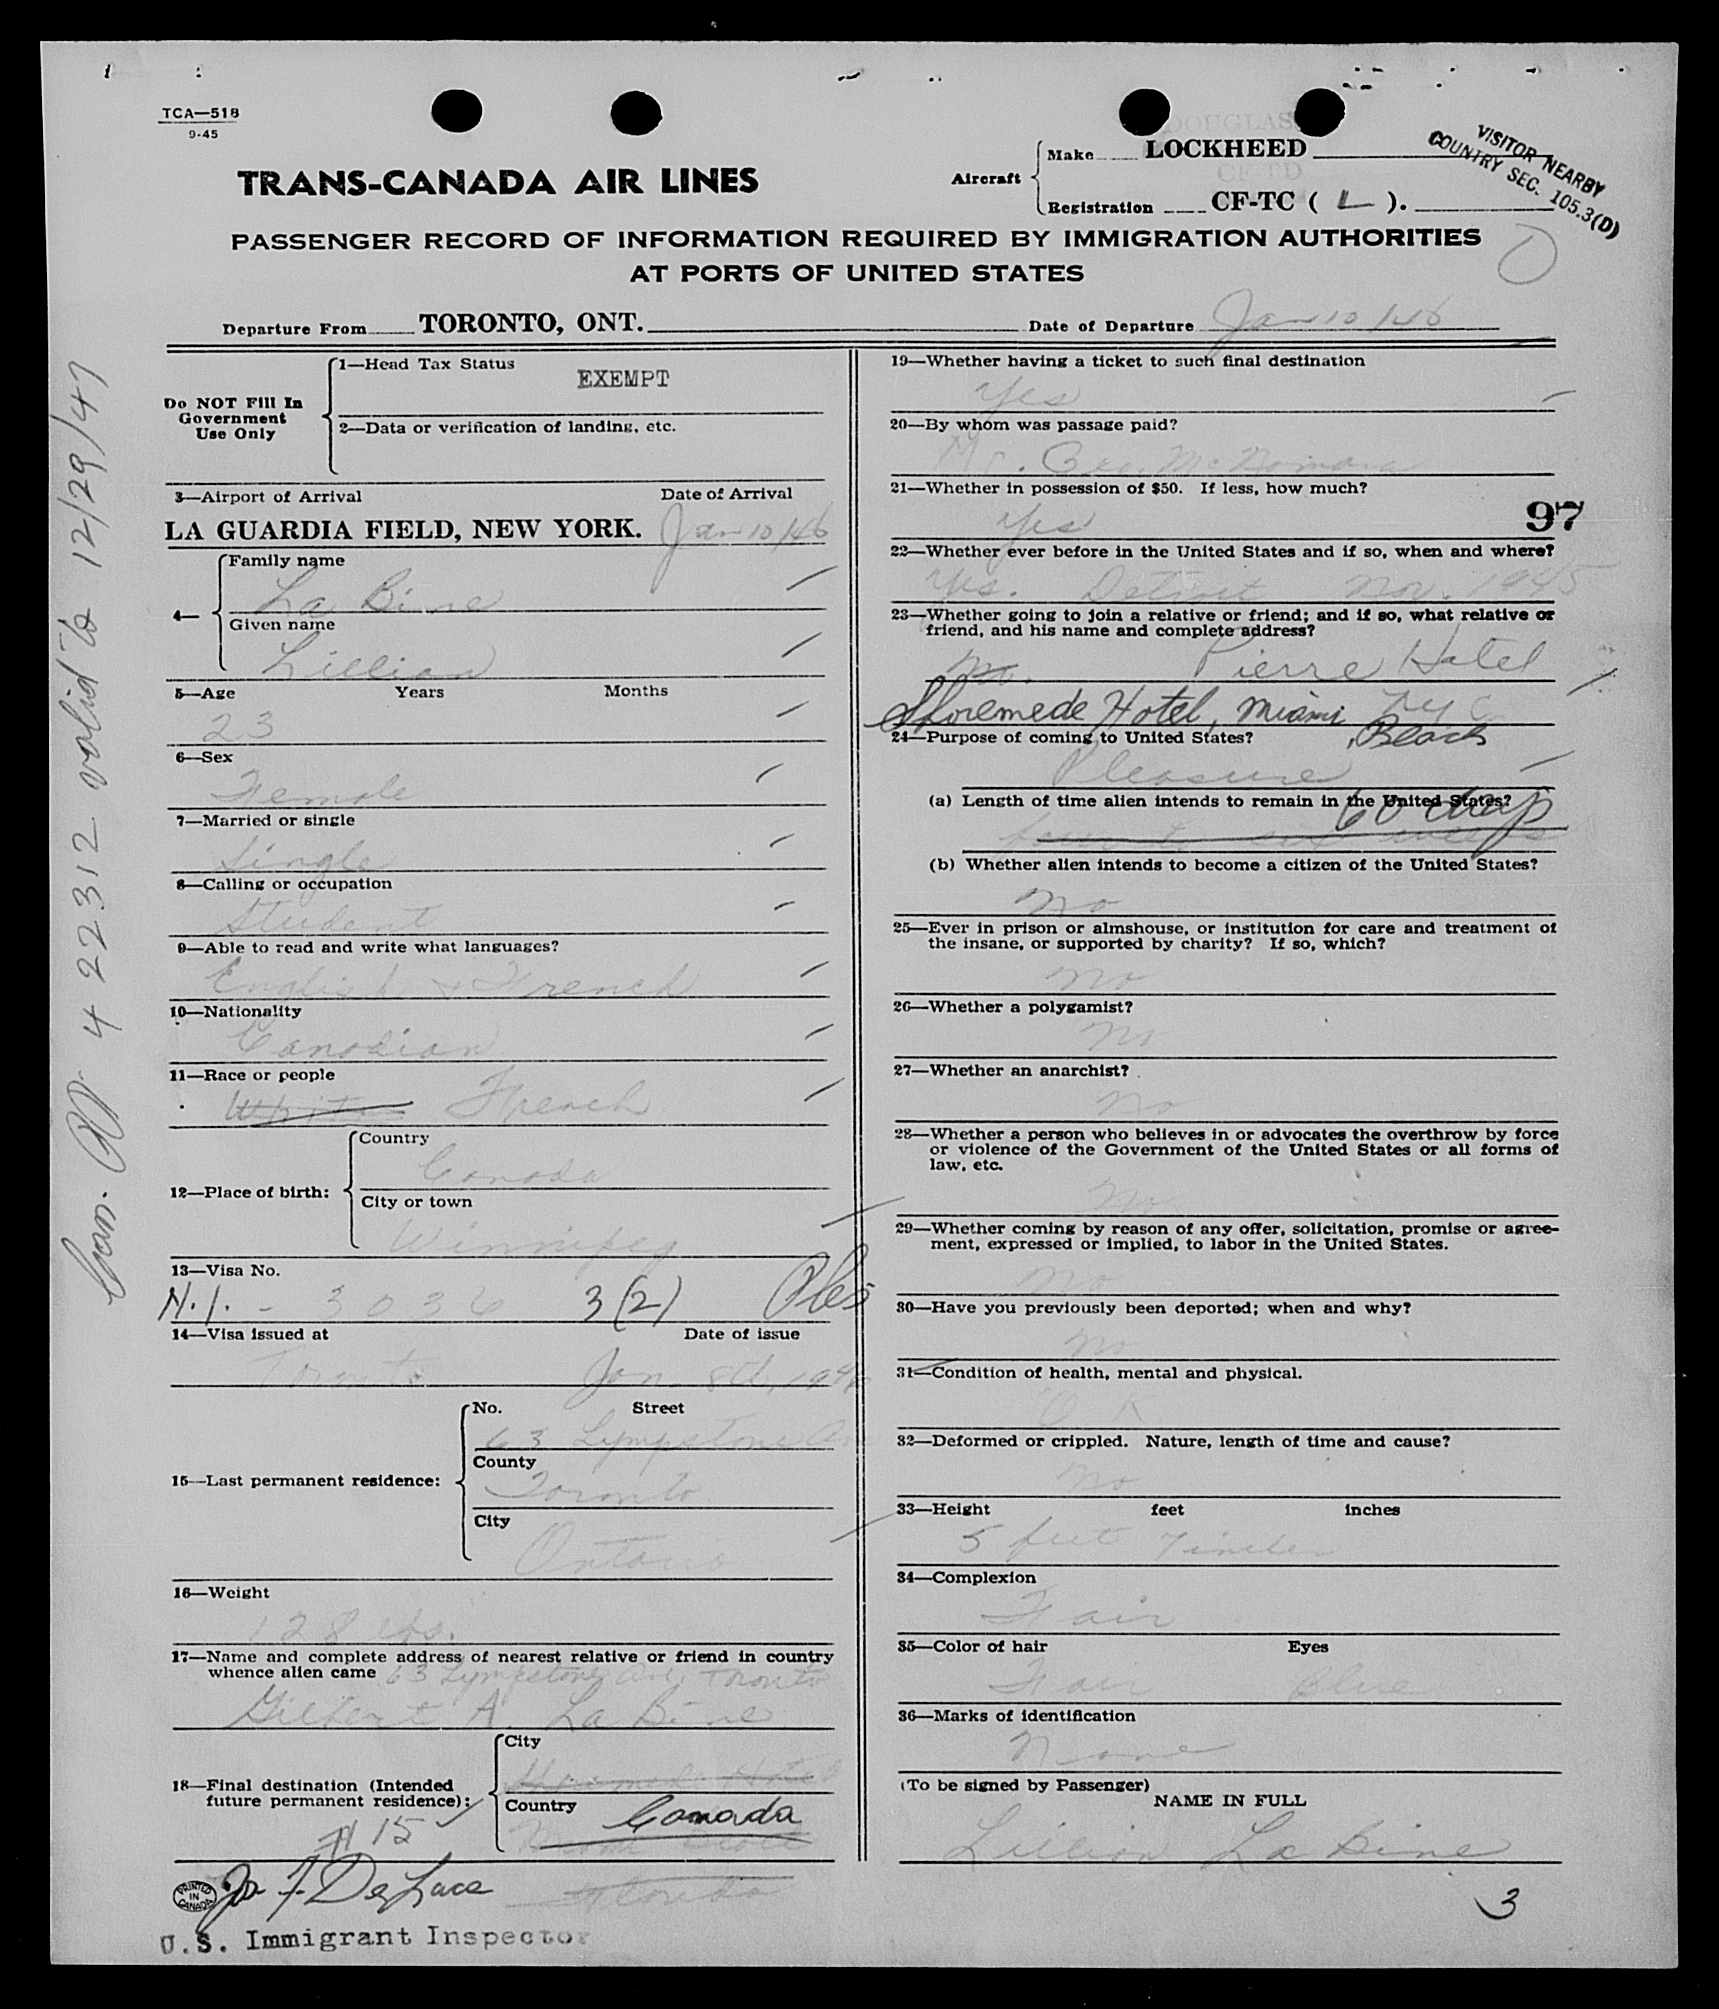 TCA—518
9-45
TRANS-CANADA AIR LINES
DOUGLAS
Aircraft
Make LOCKHEED
CF TD
Registration CF-TC ( L ).
VISITOR NEARBY
COUNTRY SEC. 105.3(D)
PASSENGER RECORD OF INFORMATION REQUIRED BY IMMIGRATION AUTHORITIES
AT PORTS OF UNITED STATES
Departure From TORONTO, ONT. Date of Departure Jan 10/46
Can. PP 422312 valid to 12/29/47
Do NOT Fill In
Government
Use Only
1—Head Tax Status
EXEMPT
2—Data or verification of landing, etc.
3—Airport of Arrival Date of Arrival
LA GUARDIA FIELD, NEW YORK. Jan 10/46
4—
Family name
La Bine
Given name
Lillian
5—Age Years Months
23
6—Sex
Female
7—Married or single
Single
8—Calling or occupation
Student
9—Able to read and write what languages?
English & French
10—Nationality
Canadian
11—Race or people
White French
12—Place of birth:
Country
Canada
City or town
Winnipeg
13—Visa No.
N.I. - 3036 3(2)
14—Visa issued at Date of issue
Toronto Jan 8th, 1946
15—Last permanent residence:
No. Street
63 Lympstone Ave
County
Toronto
City
Ontario
16—Weight
128 lbs.
17—Name and complete address of nearest relative or friend in country
whence alien came 63 Lympstone Ave, Toronto
Gilbert A. La Bine
18—Final destination (Intended
future permanent residence):
City
Shoremede Hotel
Country Canada
Miami Beach
Florida
# 15
PRINTED
IN
CANADA
U.S. Immigrant Inspector
19—Whether having a ticket to such final destination
Yes
20—By whom was passage paid?
Mr. Geo. McNamara
21—Whether in possession of $50. If less, how much?
Yes
97
22—Whether ever before in the United States and if so, when and where?
Yes. Detroit Nov. 1945
23—Whether going to join a relative or friend; and if so, what relative or
friend, and his name and complete address?
no. Pierre Hotel
Shoremede Hotel, Miami NYC
Beach
24—Purpose of coming to United States?
Pleasure
(a) Length of time alien intends to remain in the United States?
60 days
(b) Whether alien intends to become a citizen of the United States?
No
25—Ever in prison or almshouse, or institution for care and treatment of
the insane, or supported by charity? If so, which?
No
26—Whether a polygamist?
No
27—Whether an anarchist?
No
28—Whether a person who believes in or advocates the overthrow by force
or violence of the Government of the United States or all forms of
law, etc.
No
29—Whether coming by reason of any offer, solicitation, promise or agree-
ment, expressed or implied, to labor in the United States.
No
30—Have you previously been deported; when and why?
No
31—Condition of health, mental and physical.
O K
32—Deformed or crippled. Nature, length of time and cause?
No
33—Height feet inches
5 feet 7 inches
34—Complexion
Fair
35—Color of hair Eyes
Fair Blue
36—Marks of identification
None
(To be signed by Passenger)
NAME IN FULL
Lillian La Bine
3